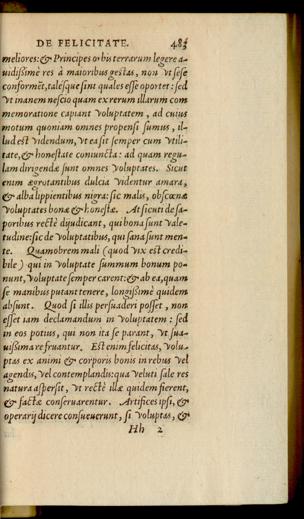 DE FELICITATE. 483
meliores: & Principes orbis terrarum legere a-
uidißimè res à maioribus gestas, non vt sese
conformẽt, talésque sint quales esse oportet: sed
vt inanem nescio quam ex rerum illarum com
memoratione capiant voluptatem, ad cuius
motum quoniam omnes propensi sumus, il-
lud est videndum, vt ea sit semper cum vtili-
tate, & honestate coniuncta: ad quam regu-
lam dirigendæ sunt omnes voluptates. Sicut
enim ægrotantibus dulcia videntur amara,
& alba lippientibus nigra: sic malis, obscœnæ
voluptates bonæ & honestæ. At sicuti de sa-
poribus rectè dijudicant, qui bona sunt vale-
tudine: sic de voluptatibus, qui sana sunt men-
te. Quamobrem mali (quod vix est credi-
bile) qui in voluptate summum bonum po-
nunt, voluptate semper carent: & ab ea, quam
se manibus putant tenere, longißimè quidem
absunt. Quod si illis persuaderi posset, non
esset iam declamandum in voluptatem: sed
in eos potius, qui non ita se parant, vt sua-
uißima re fruantur. Est enim felicitas, volu-
ptas ex animi & corporis bonis in rebus vel
agendis, vel contemplandis: qua veluti sale res
natura aspersit, vt rectè illæ quidem fierent,
& factæ conseruarentur. Artifices ipsi, &
operarij dicere consueuerunt, si voluptas, &
Hh 2